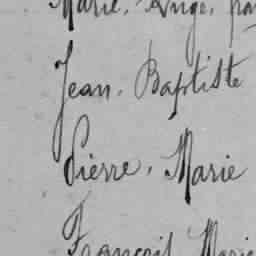 Marie, Ange, fra
Jean, Baptiste
Pierre, Marie
François, Marie